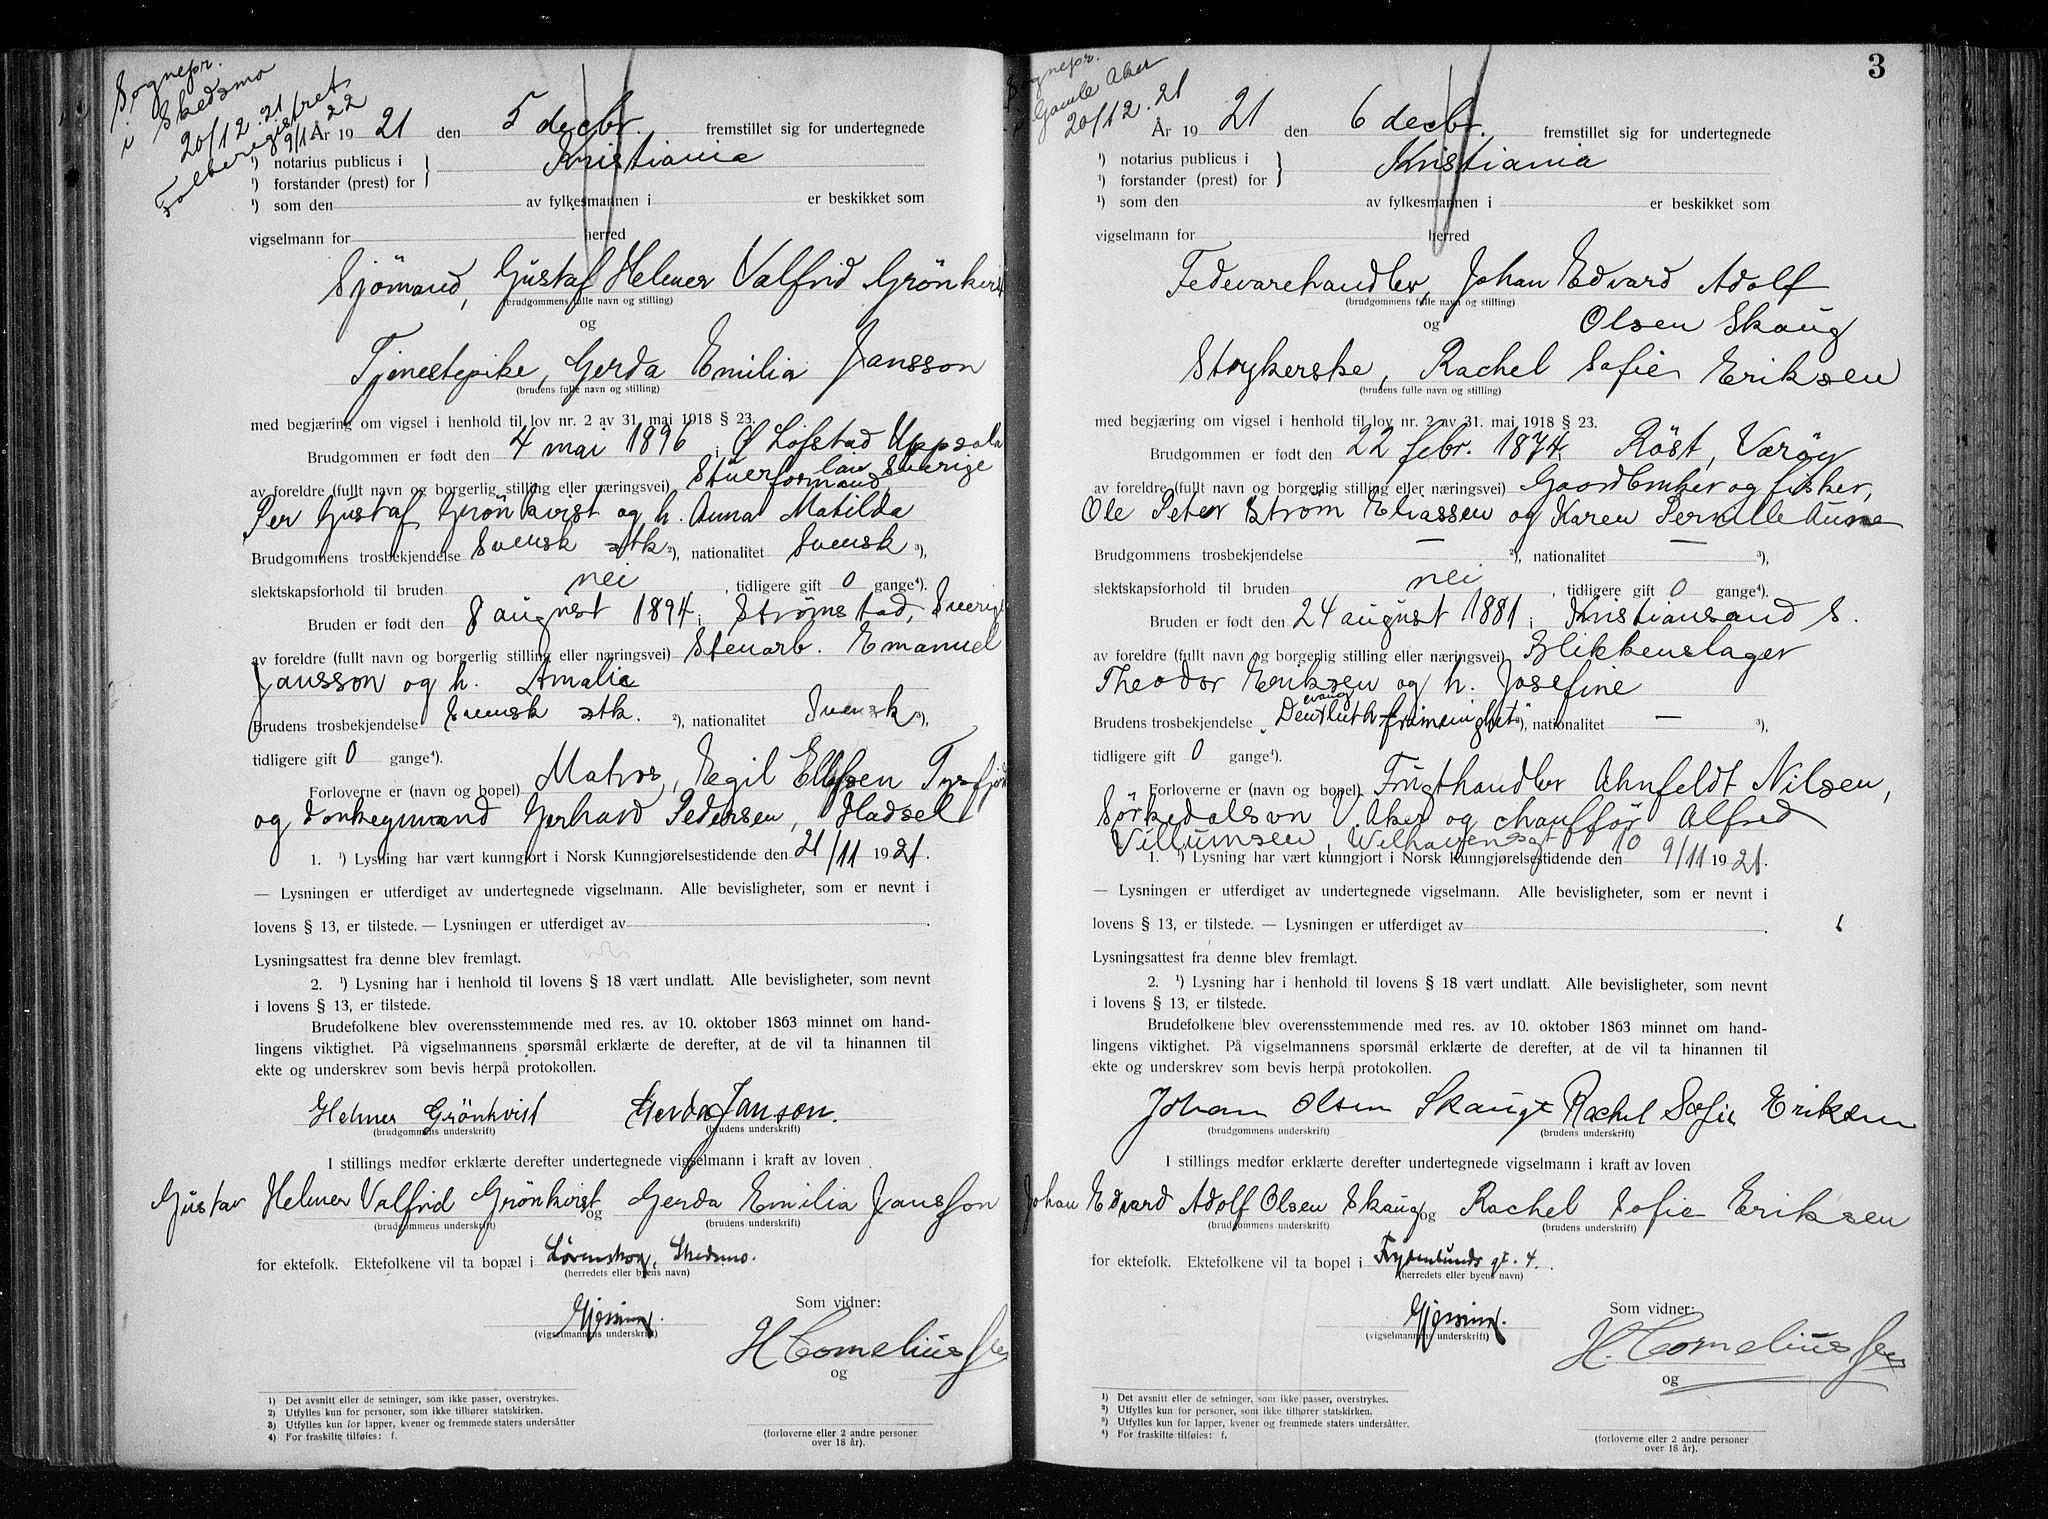 Sognepr.
i Skedsmo
20/12.21
Folkeregistret
9/1 22
År 1921 den 5 decbr. fremstillet sig for undertegnede
¹) notarius publicus i } Kristiania
¹) forstander (prest) for
¹) som den av fylkesmannen i er beskikket som
vigselmann for herred
Sjömand, Gustaf Helmer Valfrid Grönkvist
(brudgommens fulle navn og stilling)
og
Tjenestepike, Gerda Emilia Jansson
(brudens fulle navn og stilling)
med begjæring om vigsel i henhold til lov nr. 2 av 31. mai 1918 § 23.
Brudgommen er født den 4 mai 1896 i Ø Löfstad Uppsala
län Sverige
av foreldre (fullt navn og borgerlig stilling eller næringsvei) Stuerformand,
Per Gustaf Grönkvist og h. Anna Matilda
Brudgommens trosbekjendelse Svensk stk ²), nationalitet Svensk ³),
slektskapsforhold til bruden nei, tidligere gift 0 gange⁴).
Bruden er født den 8 august 1894 i Strömstad, Sverige
av foreldre (fullt navn og borgerlig stilling eller næringsvei) Stenarb. Emanuel
Jansson og h. Amalie
Brudens trosbekjendelse Svensk stk. ²), nationalitet Svensk ³),
tidligere gift 0 gange⁴).
Forloverne er (navn og bopel) Matros, Egil Ellefsen Tysfjord
og donkeymand Gerhard Pedersen, Hadsel
1. ¹) Lysning har vært kunngjort i Norsk Kunngjørelsestidende den 21/11 1921.
— Lysningen er utferdiget av undertegnede vigselmann. Alle bevisligheter, som er nevnt i
lovens § 13, er tilstede. — Lysningen er utferdiget av .
Lysningsattest fra denne blev fremlagt.
2. ¹) Lysning har i henhold til lovens § 18 vært undlatt. Alle bevisligheter, som nevnt
i lovens § 13, er tilstede.
Brudefolkene blev overensstemmende med res. av 10. oktober 1863 minnet om hand-
lingens viktighet. På vigselmannens spørsmål erklærte de derefter, at de vil ta hinannen til
ekte og underskrev som bevis herpå protokollen.
Helmer Grönkvist Gerda Janson.
(brudgommens underskrift) (brudens underskrift)
I stillings medfør erklærte derefter undertegnede vigselmann i kraft av loven
Gustav Helmer Valfrid Grönkvist og Gerda Emilia Jansson
(brudgommens underskrift) (brudens underskrift)
for ektefolk. Ektefolkene vil ta bopæl i Lørenskog, Skedsmo.
(herredets eller byens navn)
Gjessing.
(vigselmannens underskrift)
Som vidner:
H Corneliussen
og
(forloverne eller 2 andre personer
over 18 år).
1) Det avsnitt eller de setninger, som ikke passer, overstrykes.
2) Utfylles kun for personer, som ikke tilhører statskirken.
3) Utfylles kun for lapper, kvener og fremmede staters undersåtter
4) For fraskilte tilføies: f.
3
Sognepr.
i Gamle Aker
20/12.21
År 1921 den 6 decbr. fremstillet sig for undertegnede
¹) notarius publicus i } Kristiania
¹) forstander (prest) for
¹) som den av fylkesmannen i er beskikket som
vigselmann for herred
Fedevarehandler, Johan Edvard Adolf
(brudgommens fulle navn og stilling)
og Olsen Skaug
Strykerske, Rachel Sofie Eriksen
(brudens fulle navn og stilling)
med begjæring om vigsel i henhold til lov nr. 2 av 31. mai 1918 § 23.
Brudgommen er født den 22 febr. 1874 i Röst, Væröy
av foreldre (fullt navn og borgerlig stilling eller næringsvei) Gaardbruker og fisker,
Ole Peter Ström Eliassen og Karen Pernille Aune
Brudgommens trosbekjendelse — ²), nationalitet — ³),
slektskapsforhold til bruden nei, tidligere gift 0 gange⁴).
Bruden er født den 24 august 1881 i Kristiansand S.
av foreldre (fullt navn og borgerlig stilling eller næringsvei) Blikkenslager
Theodor Eriksen og h. Josefine
Brudens trosbekjendelse "Den evang luth frimenighet" ²), nationalitet — ³),
tidligere gift 0 gange⁴).
Forloverne er (navn og bopel) Frugthandler Ahnfeldt Nilsen,
Sörkedalsvn V. Aker og chaufför Alfred
Villumsen, Welhavensgt 10
1. ¹) Lysning har vært kunngjort i Norsk Kunngjørelsestidende den 9/11 1921.
— Lysningen er utferdiget av undertegnede vigselmann. Alle bevisligheter, som er nevnt i
lovens § 13, er tilstede. — Lysningen er utferdiget av .
Lysningsattest fra denne blev fremlagt.
2. ¹) Lysning har i henhold til lovens § 18 vært undlatt. Alle bevisligheter, som nevnt
i lovens § 13, er tilstede.
Brudefolkene blev overensstemmende med res. av 10. oktober 1863 minnet om hand-
lingens viktighet. På vigselmannens spørsmål erklærte de derefter, at de vil ta hinannen til
ekte og underskrev som bevis herpå protokollen.
Johan Olsen Skaug Rachel Sofie Eriksen
(brudgommens underskrift) (brudens underskrift)
I stillings medfør erklærte derefter undertegnede vigselmann i kraft av loven
Johan Edvard Adolf Olsen Skaug og Rachel Sofie Eriksen
(brudgommens underskrift) (brudens underskrift)
for ektefolk. Ektefolkene vil ta bopel i Frydenlunds gt. 4.
(herredets eller byens navn)
Gjessing.
(vigselmannens underskrift)
Som vidner:
H. Corneliussen
og
(forloverne eller 2 andre personer
over 18 år).
¹) Det avsnitt eller de setninger, som ikke passer, overstrykes.
²) Utfylles kun for personer, som ikke tilhører statskirken.
³) Utfylles kun for lapper, kvener og fremmede staters undersåtter.
⁴) For fraskilte tilføies: f.